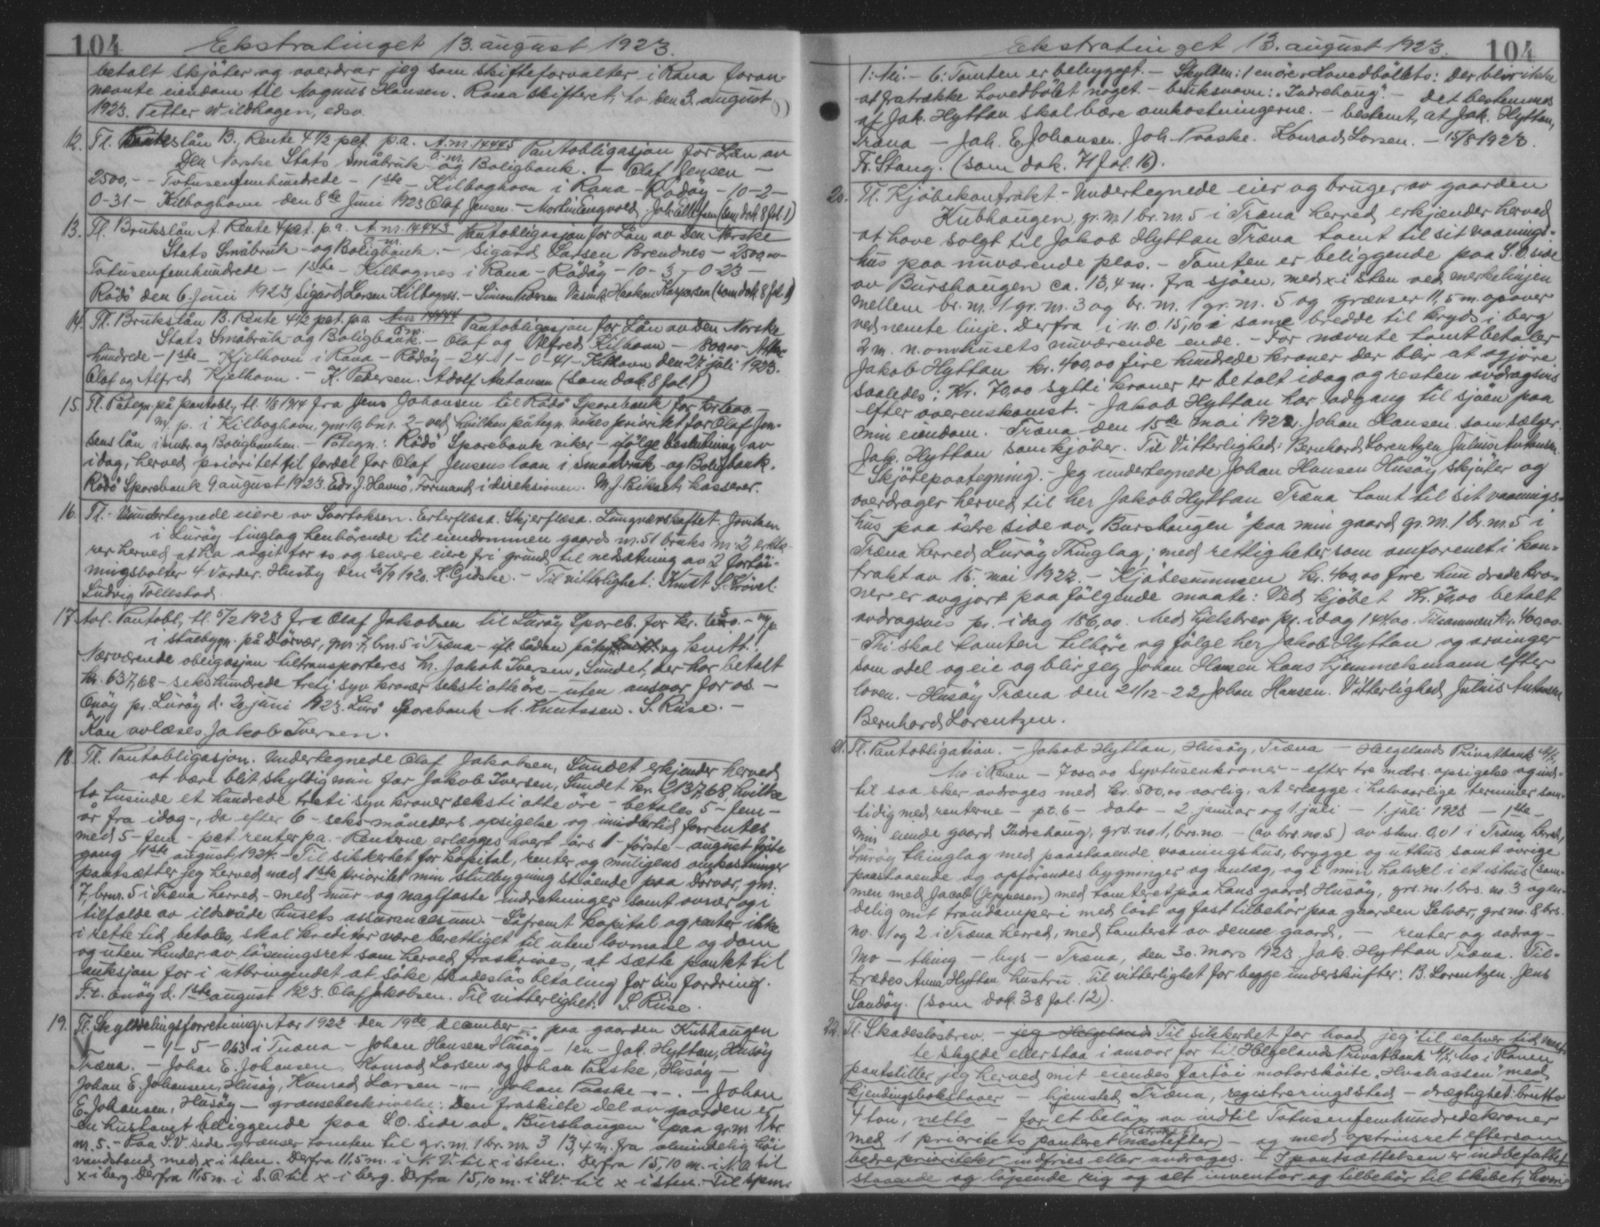 104 Ekstratinget 13. august 1923.
betalt skjöter og overdrar jeg som skifteforvalter i Rana foran-
nevnte eiendom til Magnus Hansen. Rana skifteret, den 3. august
1923. Petter Wildhagen, edsv.
12. Tl. Brukslån B. Rente 4½ pct p.a. A. nr. 14445 Pantobligasjon for Lån av
Den Norske Stats Småbruk- og Boligbank. - Olaf Jensen -
2500,- - Totusenfemhundrede - 1ste - Kilboghavn i Rana - Rödöy - 10-2-
0-31 - Kilboghavn den 8de Juni 1923 Olaf Jensen. - (som dok 8 fol 1)
13. Tl. Brukslån A. Rente 4 pct. p.a. A. nr. 14443 Pantobligasjon for Lån av Den Norske
Stats Småbruk- og Boligbank. - Sigurd Larsen Brendnes - 2500,00
Totusenfemhundrede - 1ste - Kilbognes i Rana - Rödöy - 10 - 3 - 0-23 -
Rödö den 6. Juni 1923 Sigurd Larsen Kilbognes. - Simon Pedersen Haakon Kaspersen (som dok 8 fol 1)
14. Tl. Brukslån B. Rente 4½ pct. p.a. A nr 14444 Pantobligasjon for Lån av den Norske
Stats Småbruk og Boligbank. - Olaf og Alfred Kilhavn - 800,00 - Åtte-
hundrede - 1ste - Kjelhavn i Rana - Rödöy - 24-1-0-41 - Kilhavn den 27 juli 1923.
Olaf og Alfred Kjelhavn. - K. Pedersen. Adolf Antonsen (som dok 8 fol 1)
15. Tl. Påtegn. på pantobl. tl. 1/8 1914 fra Jens Johansen til Rödö Sparebank for kr 600 -
m. p. i Kilboghavn, gnr 10, bnr. 2 ved hvilken påtegn. vikes prioritet for Olaf Jen-
sens lån i Småbr. og Boligbanken. - Påtegn.: Rödö Sparebank viker ifölge beslutning av
idag, herved prioritet til fordel for Olaf Jensens laan i Smaabruk- og Boligbank.
Rödö Sparebank 9 august 1923. Edv. J. Havnö, Formand i direksionen. M. J. kasserer.
16. Tl. - Undertegnede eiere av Svartoksen. Erterflæsa. Skjerflæsa.
i Luröy tinglag henhörende til eiendommen gaards nr. 51 bruks nr. 2 erklæ-
rer herved at ha avgit for os og senere eiere fri grund til nedsætning av 2 fortöi-
ningsbolter 4 Varder. Husby den 25/9 1920. K. Giske. - Til vitterlighet: Knut
Ludvig Tollestad.
17. Avl. Pantobl. tl. 5/2 1923 fra Olaf Jakobsen til Luröy Spareb. for kr. 650.- m/p
i stuebygn. på Dörvær, gnr. 7, brnr. 5 i Træna - ifl. sådan påtegnt og kvitt.:
Nærværende obligasjon tiltransporteres hr. Jakob Iversen, Sundet, der har betalt
kr. 637,68 - sekshundrede treti syv kroner seksti otte öre - uten ansvar for os -
Onöy pr. Luröy d. 29 juni 1923. Lurö Sparebank M. Knutssen. S. Ruse. -
Kan avlæses Jakob Iversen.
18. Tl. Pantobligasjon. Undertegnede Olaf Jakobsen, Sundet erkjender herved
at være blit skyldig min far Jakob Iversen, Sundet kr. 2137,68, hvilke
to tusinde et hundrede treti syv kroner seksti otte öre - betales 5 - fem -
år fra idag -, da efter 6 - seks måneders opsigelse og imidlertid forrentes
med 5 - fem - pct renter pa. - Renterne erlægges hvert års 1 - förste - august, förste
gang 1ste august 1924. - Til sikkerhet for kapital, renter og muligens omkostninger
pantsætter jeg herved med 1ste prioritet min stuebygning stående paa dörvær, gnr.
7, brnr. 5 i Træna herred - med mur- og naglfaste indretninger samt ovner og i
tilfælde av ildsvåde husets assurancesum. - Såfremt kapital og renter ikke
i rette tid betales, skal kreditor være berettiget til uten lovmaal og dom
og uten hinder av lösningsret som herved fraskrives, at sætte pantet til
auksjon for i utbringendet at söke skadeslös betaling for sin fordring.
F.t. Onöy d. 1ste august 1923. Olaf Jakobsen. Til vitterlighet: S. Ruse.
19. Tl. Skylddelingsforretning. Aar 1922 den 19de december - paa gaarden Kubhaugen
- 1 - 5 - 0,63 i Træna - Johan Hansen Husöy - 1 en - Jak. Hyttan, Husöy
Træna. - Johan E. Johansen Konrad Larsen og Johan Paaske, Husöy -
Johan E. Johansen, Husöy, Konrad Larsen - " - Johan Paaske - . - Johan
E. Johansen, Husöy - grænsebeskrivelse: Den fraskilte del av gaarden er
en hustomt beliggende paa S.O. side av "Burshaugen" paa gr.nr. 1 br.
nr. 5. - Paa S.V. side grænser tomten til gr. nr. 1 br. nr. 3 13,4 m. fra almindelig höi-
vandstand med x i sten. Derfra 11,5 m. i N.V. til x i sten. Derfra 15,10 m. i N.O til
x i berg. Derfra 11,5 m. i S.O. til x i berg. Derfra 15,10 m. i S.V. til x i sten. - Til hjem:
Ekstratinget 13. august 1923. 104
1: Nei. - 6: Tomten er bebygget. - Skylden: 1 en öre. Hovedbölets: der blir ikke
at fratrække hovedbölet noget. - bruksnavn: "Indrehaug". - det bestemmes
at Jak. Hyttan skal bære omkostningerne. - bestemt, at Jak. Hyttan,
Træna - Joh. E. Johansen. Joh. Paaske. Konrad Larsen. - 15/8 1923.
Fr. Stang. (som dok. 71 fol. 16).
20. Tl. Kjöbekontrakt - Undertegnede eier og bruger av gaarden
Kubhaugen, gr. nr. 1 br. nr. 5 i Træna herred, erkjender herved
at have solgt til Jakob Hyttan Træna tomt til sit vaanings-
hus paa nuværende plas. - Tomten er beliggende paa S.O. side
av Burshaugen ca. 13,4 m. fra sjöen med x i sten ved merkelinjen
mellem br. nr. 1 gr. nr. 3 og br. nr. 1 gr. nr. 5 og grænser 11,5 m. opover
ved nevnte linje. Derfra i n.o. 15,10 i same bredde til kryds i berg
2 m. n. om husets nuværende ende. - For nævnte tomt betaler
Jakob Hyttan kr. 400,00 fire hundrede kroner der blir at avgjöre
saaledes: Kr. 70,00 sytti kroner er betalt idag og resten avdragsvis
efter overenskomst. - Jakob Hyttan har adgang til sjöen paa
min eiendom. - Træna den 15de mai 1922. Johan Hansen som sælger.
Jak. Hyttan som kjöber. Til Vitterlighed: Bernhard Lorentzen Julius Antonsen.
- Skjötepaategning. - Jeg undertegnede Johan Hansen Husöy, skjöter og
overdrager herved til her Jakob Hyttan Træna tomt til sit vaanings-
hus paa östre side av "Burshaugen" paa min gaard gr. nr. 1 br. nr. 5 i
Træna herred, Luröy Thinglag; med rettigheter som omforenet i kon-
trakt av 15. mai 1922. - Kjöbesummen kr. 400,00 fire hundrede kro-
ner er avgjort paa fölgende maate: Ved kjöbet kr. 70,00 betalt
avdragsvis pr. i dag 186,00. Med gjeldsbrev pr. i dag 144,00. Tilsammen kr. 400,00.
- Thi skal tomten tilhöre og fölge her Jakob Hyttan og arvinger
som odel og eie og blir jeg Johan Hansen hans hjemmelsmann efter
loven. - Husöy Træna den 21/12-22 Johan Hansen. Vitterlighed Julius Antonsen
Bernhard Lorentzen.
21. Tl. Pantobligation. - Jakob Hyttan, Husöy, Træna - Helgelands Privatbank A/S,
Mo i Ranen - 7000,00 Syvtusenkroner - efter tre mdrs. opsigelse og ind-
til saa sker avdrages med kr. 500,00 aarlig, at erlægge i halvaarlige terminer sam-
tidig med renterne - pt. 6 - dato - 2 januar og 1 juli - 1 juli 1923 - 1ste -
min eiende gaard Indrehaug, grs. no 1, brs. no - (av brs. no. 5) av skm. 0,01 i Træna herred,
Luröy thinglag med paastaaende vaaningshus, brygge og uthus samt övrige
paastaaende og opförendes bygninger og anlæg, og i min halvdel i et ishus (sam-
men med Jacob Jeppesen) med tomteret paa hans gaard Husöy, grs. no. 1, brs. no. 3 og en-
delig mit trandamperi med löst og fast tilbehör paa gaarden Selvær, grs. no. 8, brs.
no. 1 og 2 i Træna herred, med tomteret av denne gaard, - renter og avdrag -
Mo - thing - bys - Træna, den 30. mars 1923. Jak. Hyttan Træna. Til-
trædes Anna Hyttan hustru. Til vitterlighet for begge underskrifter: B. Lorentzen. Jens
Sandöy. (som dok. 38 fol. 12).
22. Tl. Skadeslösbrev. - jeg Helgelands Til sikkerhet for hvad jeg til enhver tid maat-
te skylde eller staa i ansvar for til Helgelands Privatbank A/S Mo i Ranen
pantstiller jeg herved mit eiendes fartöi motorsköite "Hvalrossen" med
kjendingsbokstaver - hjemsted Træna, registreringssted - drægtighet: brutto
4 ton, netto - for et belöp av indtil Totusenfemhundredekroner
med 1 prioritets panteret (næstefter) - og med optrinsret eftersom
bedre prioriteter indfries eller avdrages. - I pantsættelsen er indbefattet
staaende og löpende rig og alt inventar og tilbehör til skibet, hvor-